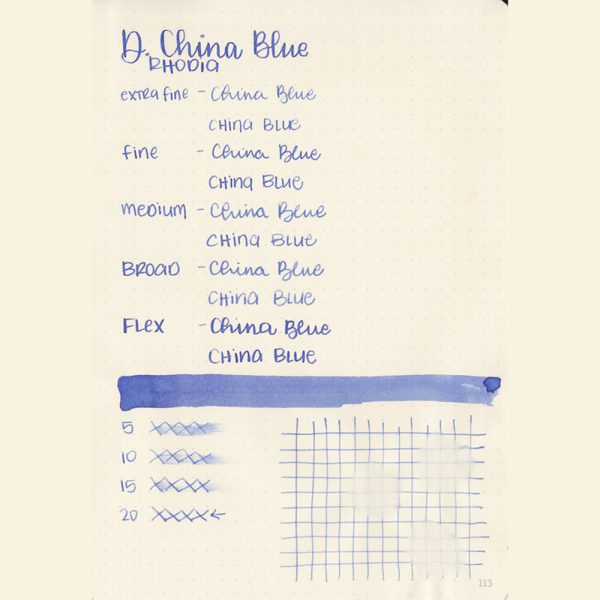 D. China Blue
RHODIA
extra fine - China Blue
CHINA BLUE
fine - China Blue
CHINA BLUE
MEDIUM - China Blue
CHINA BLUE
BROAD - China Blue
CHINA BLUE
FLEX - China Blue
CHINA BLUE
5 XXXX
10 XXXX
15 XXXX
20 XXXX ←
113